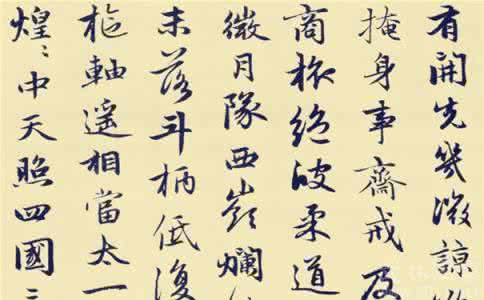 有開先幾微諒
掩身事齋戒及
商旅絕彼柔道
微月隊西嶺爛
未落斗柄低復
枢軸遥相當太一
煌〻中天照四國